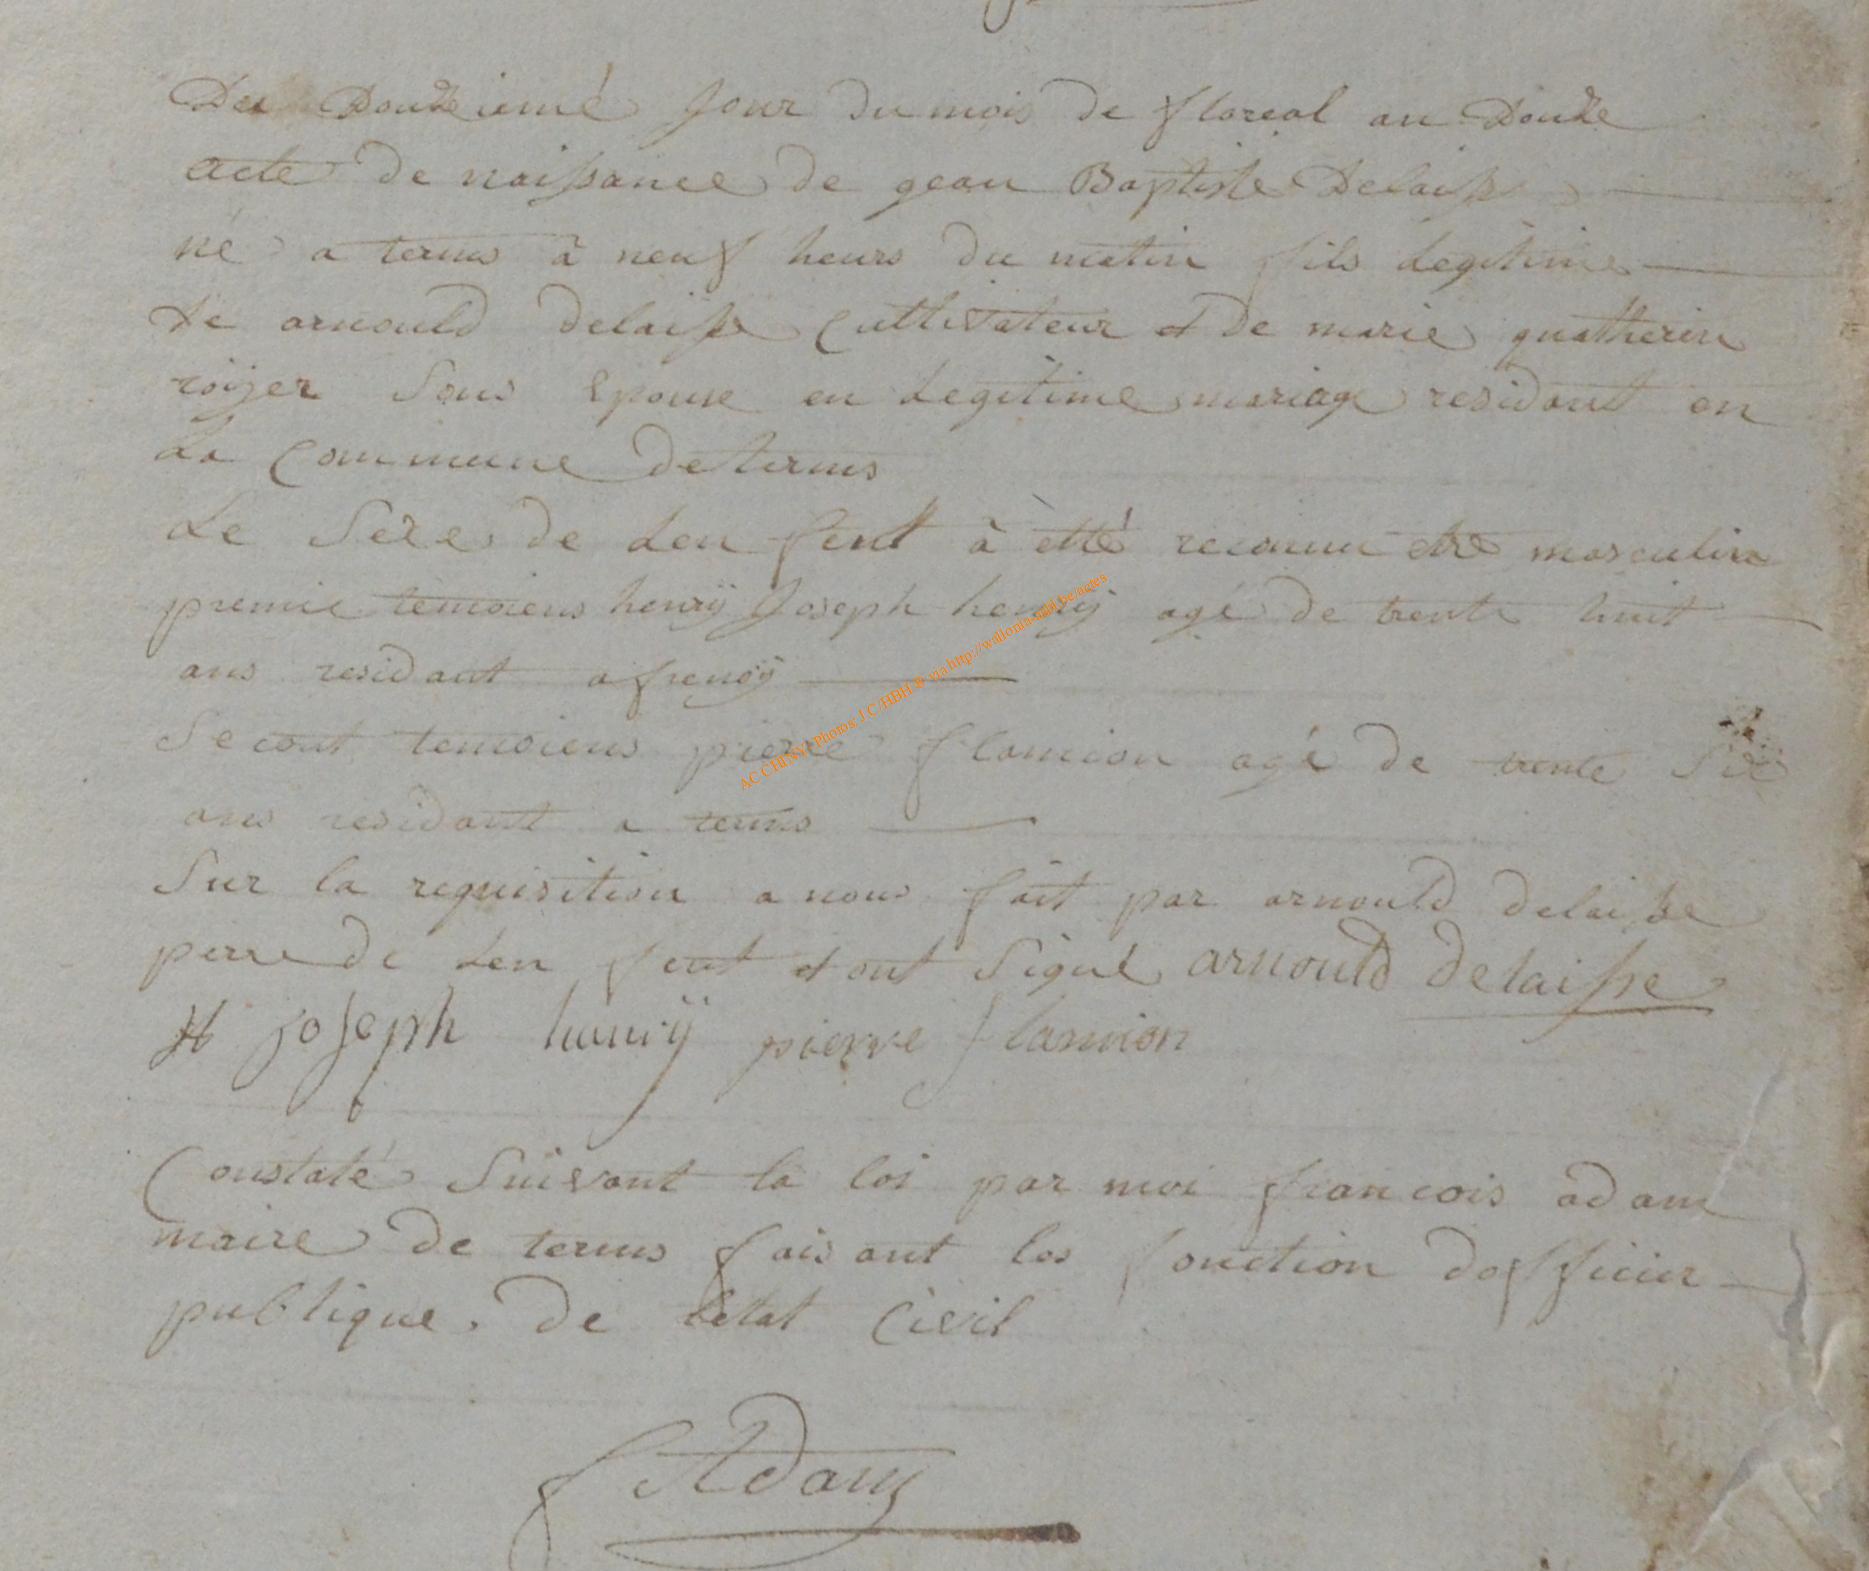 Du Douzieme Jour du mois de floreal an Douze
acte de naissance de gean Baptiste Delaisse
né a termes à neuf heurs du matin fils Legitime
de arnould delaisse Cultivateur et de marie quatherin
roÿer Sons Epouse en Legitime mariage residant en
La Commune de termes
Le Sexe de Len fent à etté reconnu etre masculin
premie temoiens henrÿ Joseph henrÿ agé de trente huit
ans residant a frenoÿ
Secont temoiens pierre flamion agé de trente Six
ans residant a termes
Sur la requisition a nous fait par arnould delaisse
perre de Len fent et ont Signé arnould Delaisse
H joseph henrÿ pierre flamion
Constaté Suivant la loi par moi francois adam
maire de termes faisant les fonction dofficier
publique de letat Civil
f Adam
AC CHINY: Photos: J C/HBH @ via http://wallonia-asbl.be/actes